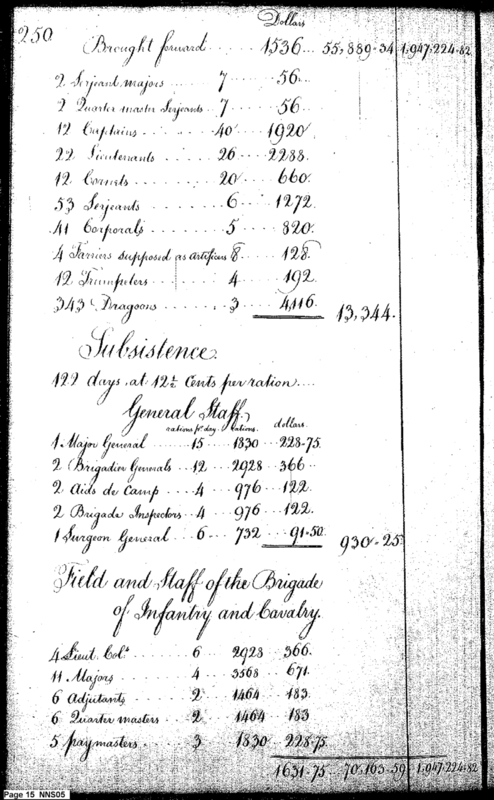 250
Dollars
Brought forward 1536 55,889-34 1,947,224-82
2 Serjeant majors 7 56
2 Quarter master Serjeants 7 56
12 Captains 40 1920
22 Lieutenants 26 2288
12 Cornets 20 660
53 Serjeants 6 1272
41 Corporals 5 820
4 Farriers supposed as artificers 8 128
12 Trumpeters 4 192
343 Dragoons 3 4,116 13,344
Subsistence
122 days at 12½ Cents per ration
General Staff
rations pr day rations dollars
1 Major General 15 1830 228-75
2 Brigadier Generals 12 2928 366
2 Aids de Camp 4 976 122
2 Brigade Inspectors 4 976 122
1 Surgeon General 6 732 91-50 930-25
Field and Staff of the Brigade
of Infantry and Cavalry
4 Lieut. Cols 6 2928 366
11 Majors 4 671
6 Adjutants 2 1464 183
6 Quarter masters 2 1464 183
5 paymasters 3 1830 228-75
1631-75 70,163-59 1,947,224-82
Page 15 NNS05